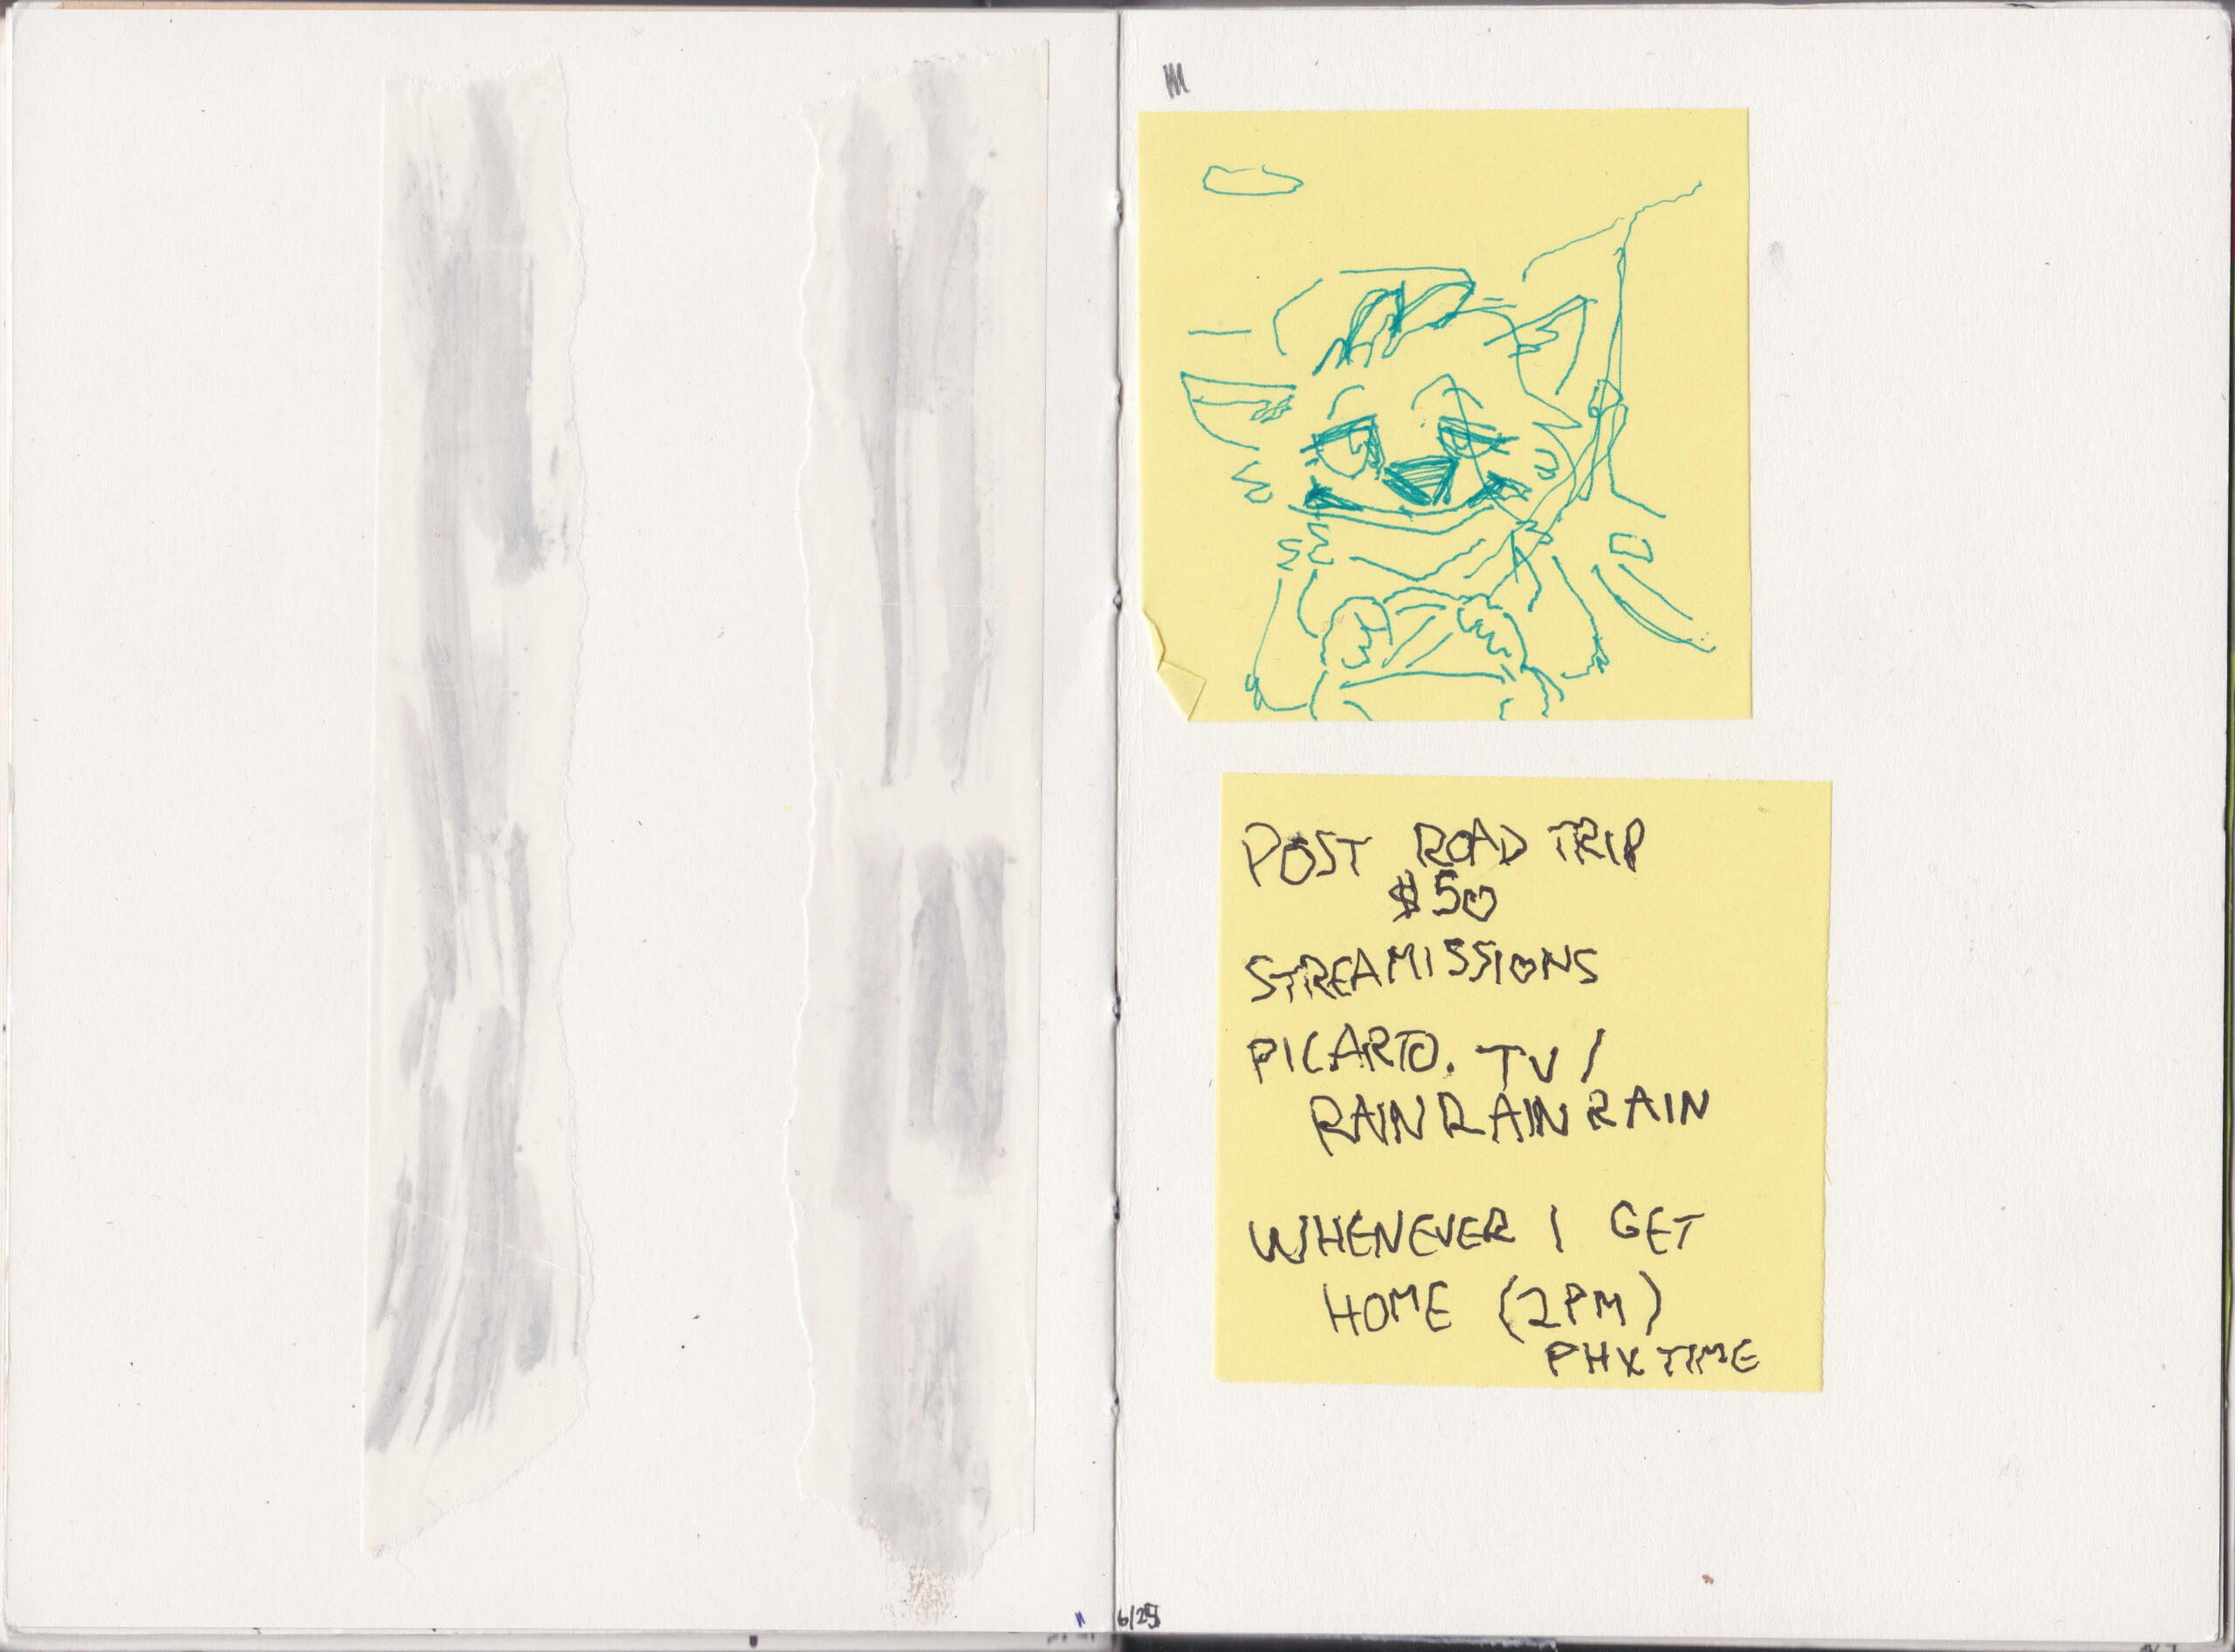 POST ROAD TRIP
$50
STREAMISSIONS
PICARTO.TV/
RAINRAINRAIN
WHENEVER I GET
HOME (2PM)
PHX TIME
6/25